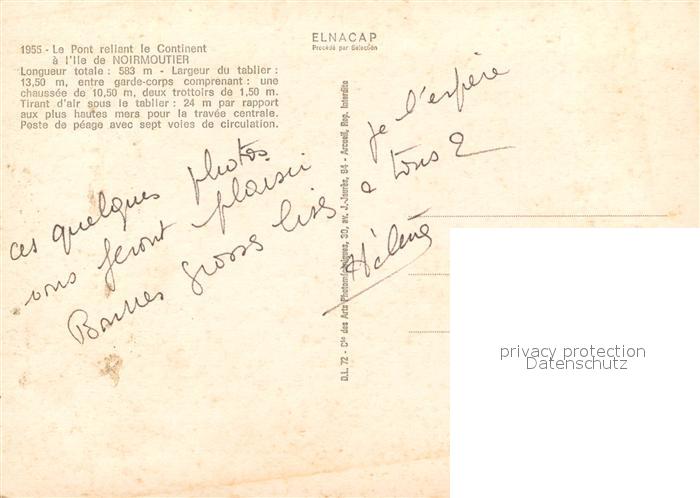 ELNACAP
Procédé par Selection
1955 - Le Pont reliant le Continent
à l'Ile de NOIRMOUTIER
Longueur totale : 583 m - Largeur du tablier :
13,50 m, entre garde-corps comprenant : une
chaussée de 10,50 m, deux trottoirs de 1,50 m.
Tirant d'air sous le tablier : 24 m par rapport
aux plus hautes mers pour la travée centrale.
Poste de péage avec sept voies de circulation.
D.L. 72 - Cie des Arts Photomécaniques, 30, av. J.-Jaurès, 94 - Arcueil, Rep. Interdite
ces quelques photos
vous feront plaisir je l'espère
Bonnes grosses bises à tous 2
Hélène
privacy protection
Datenschutz